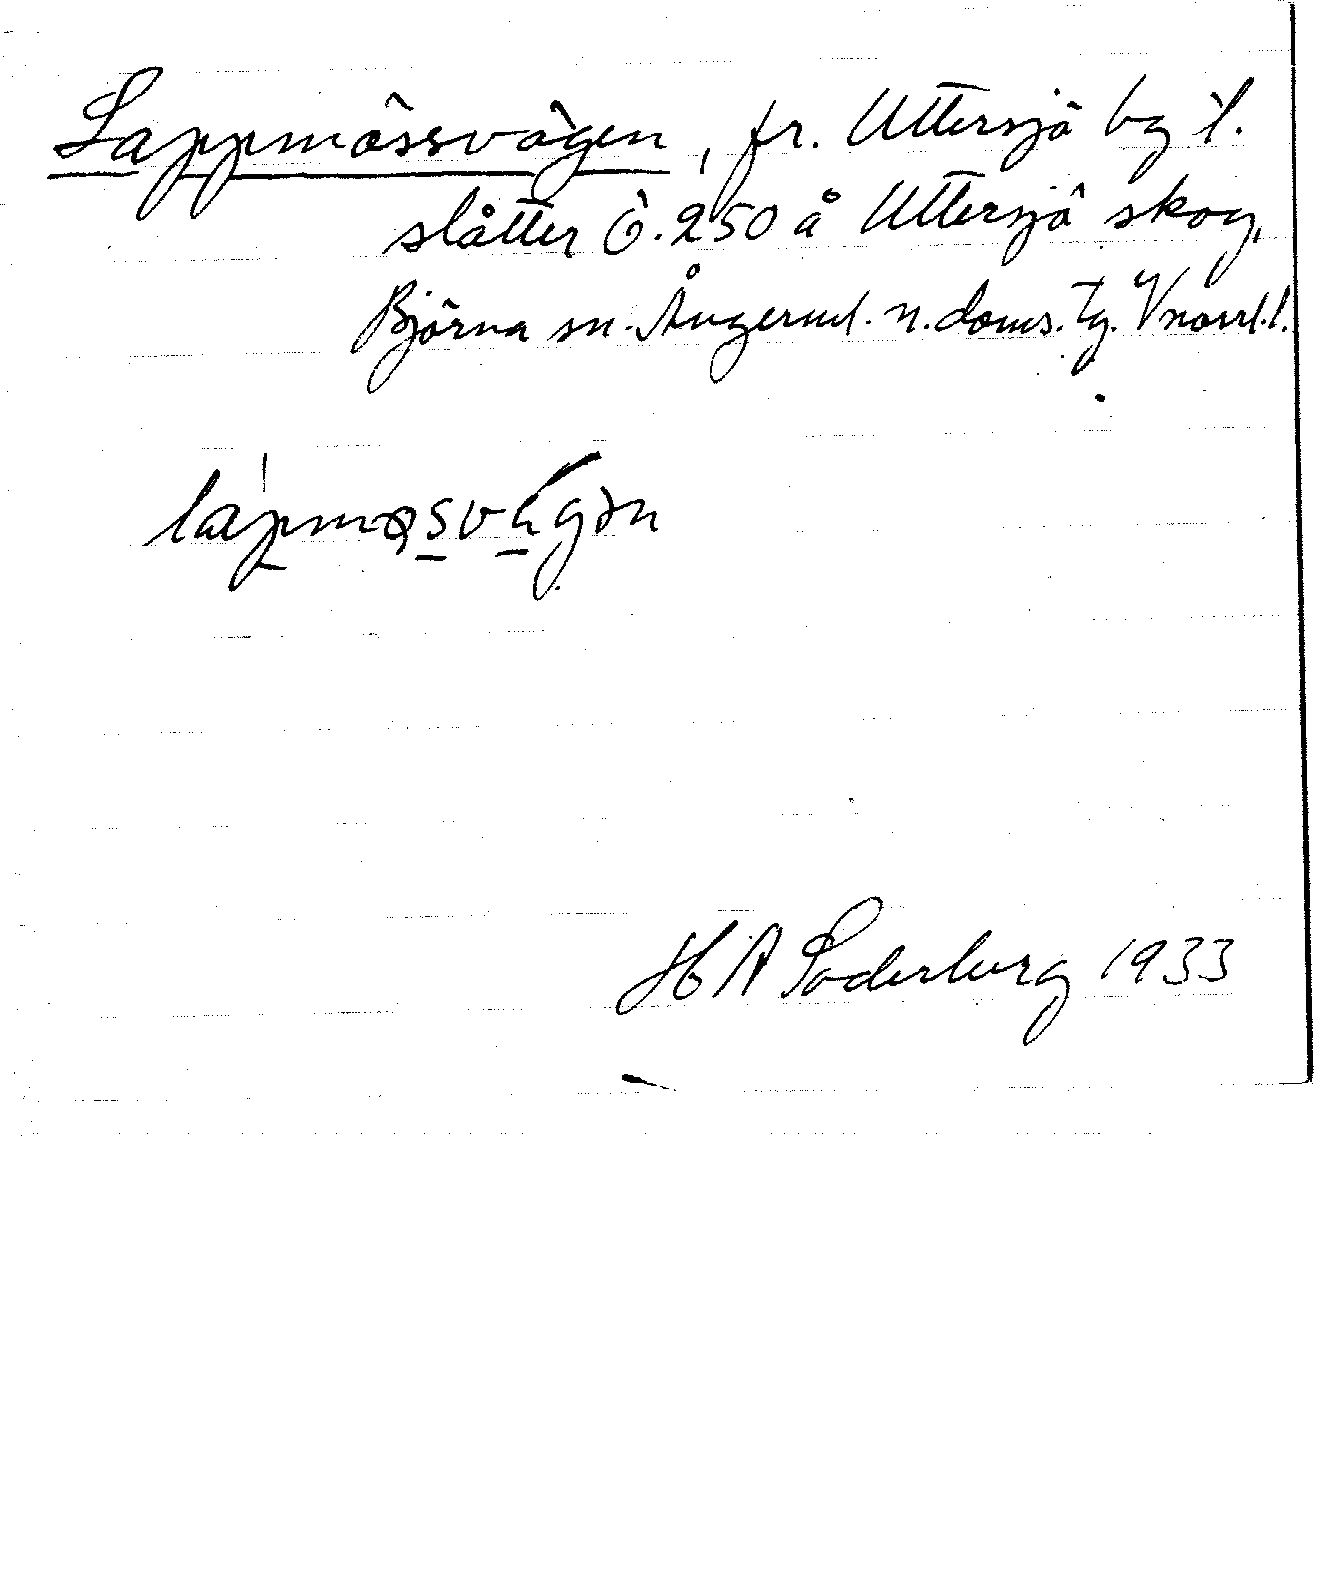 Lappmössvägen, fr. Uttersjö by t.
slåtter ö. 250 å Uttersjö skog,
Björna sn. Ångerml. n. doms. tg. Vnorrl. l.
H A Söderberg 1933